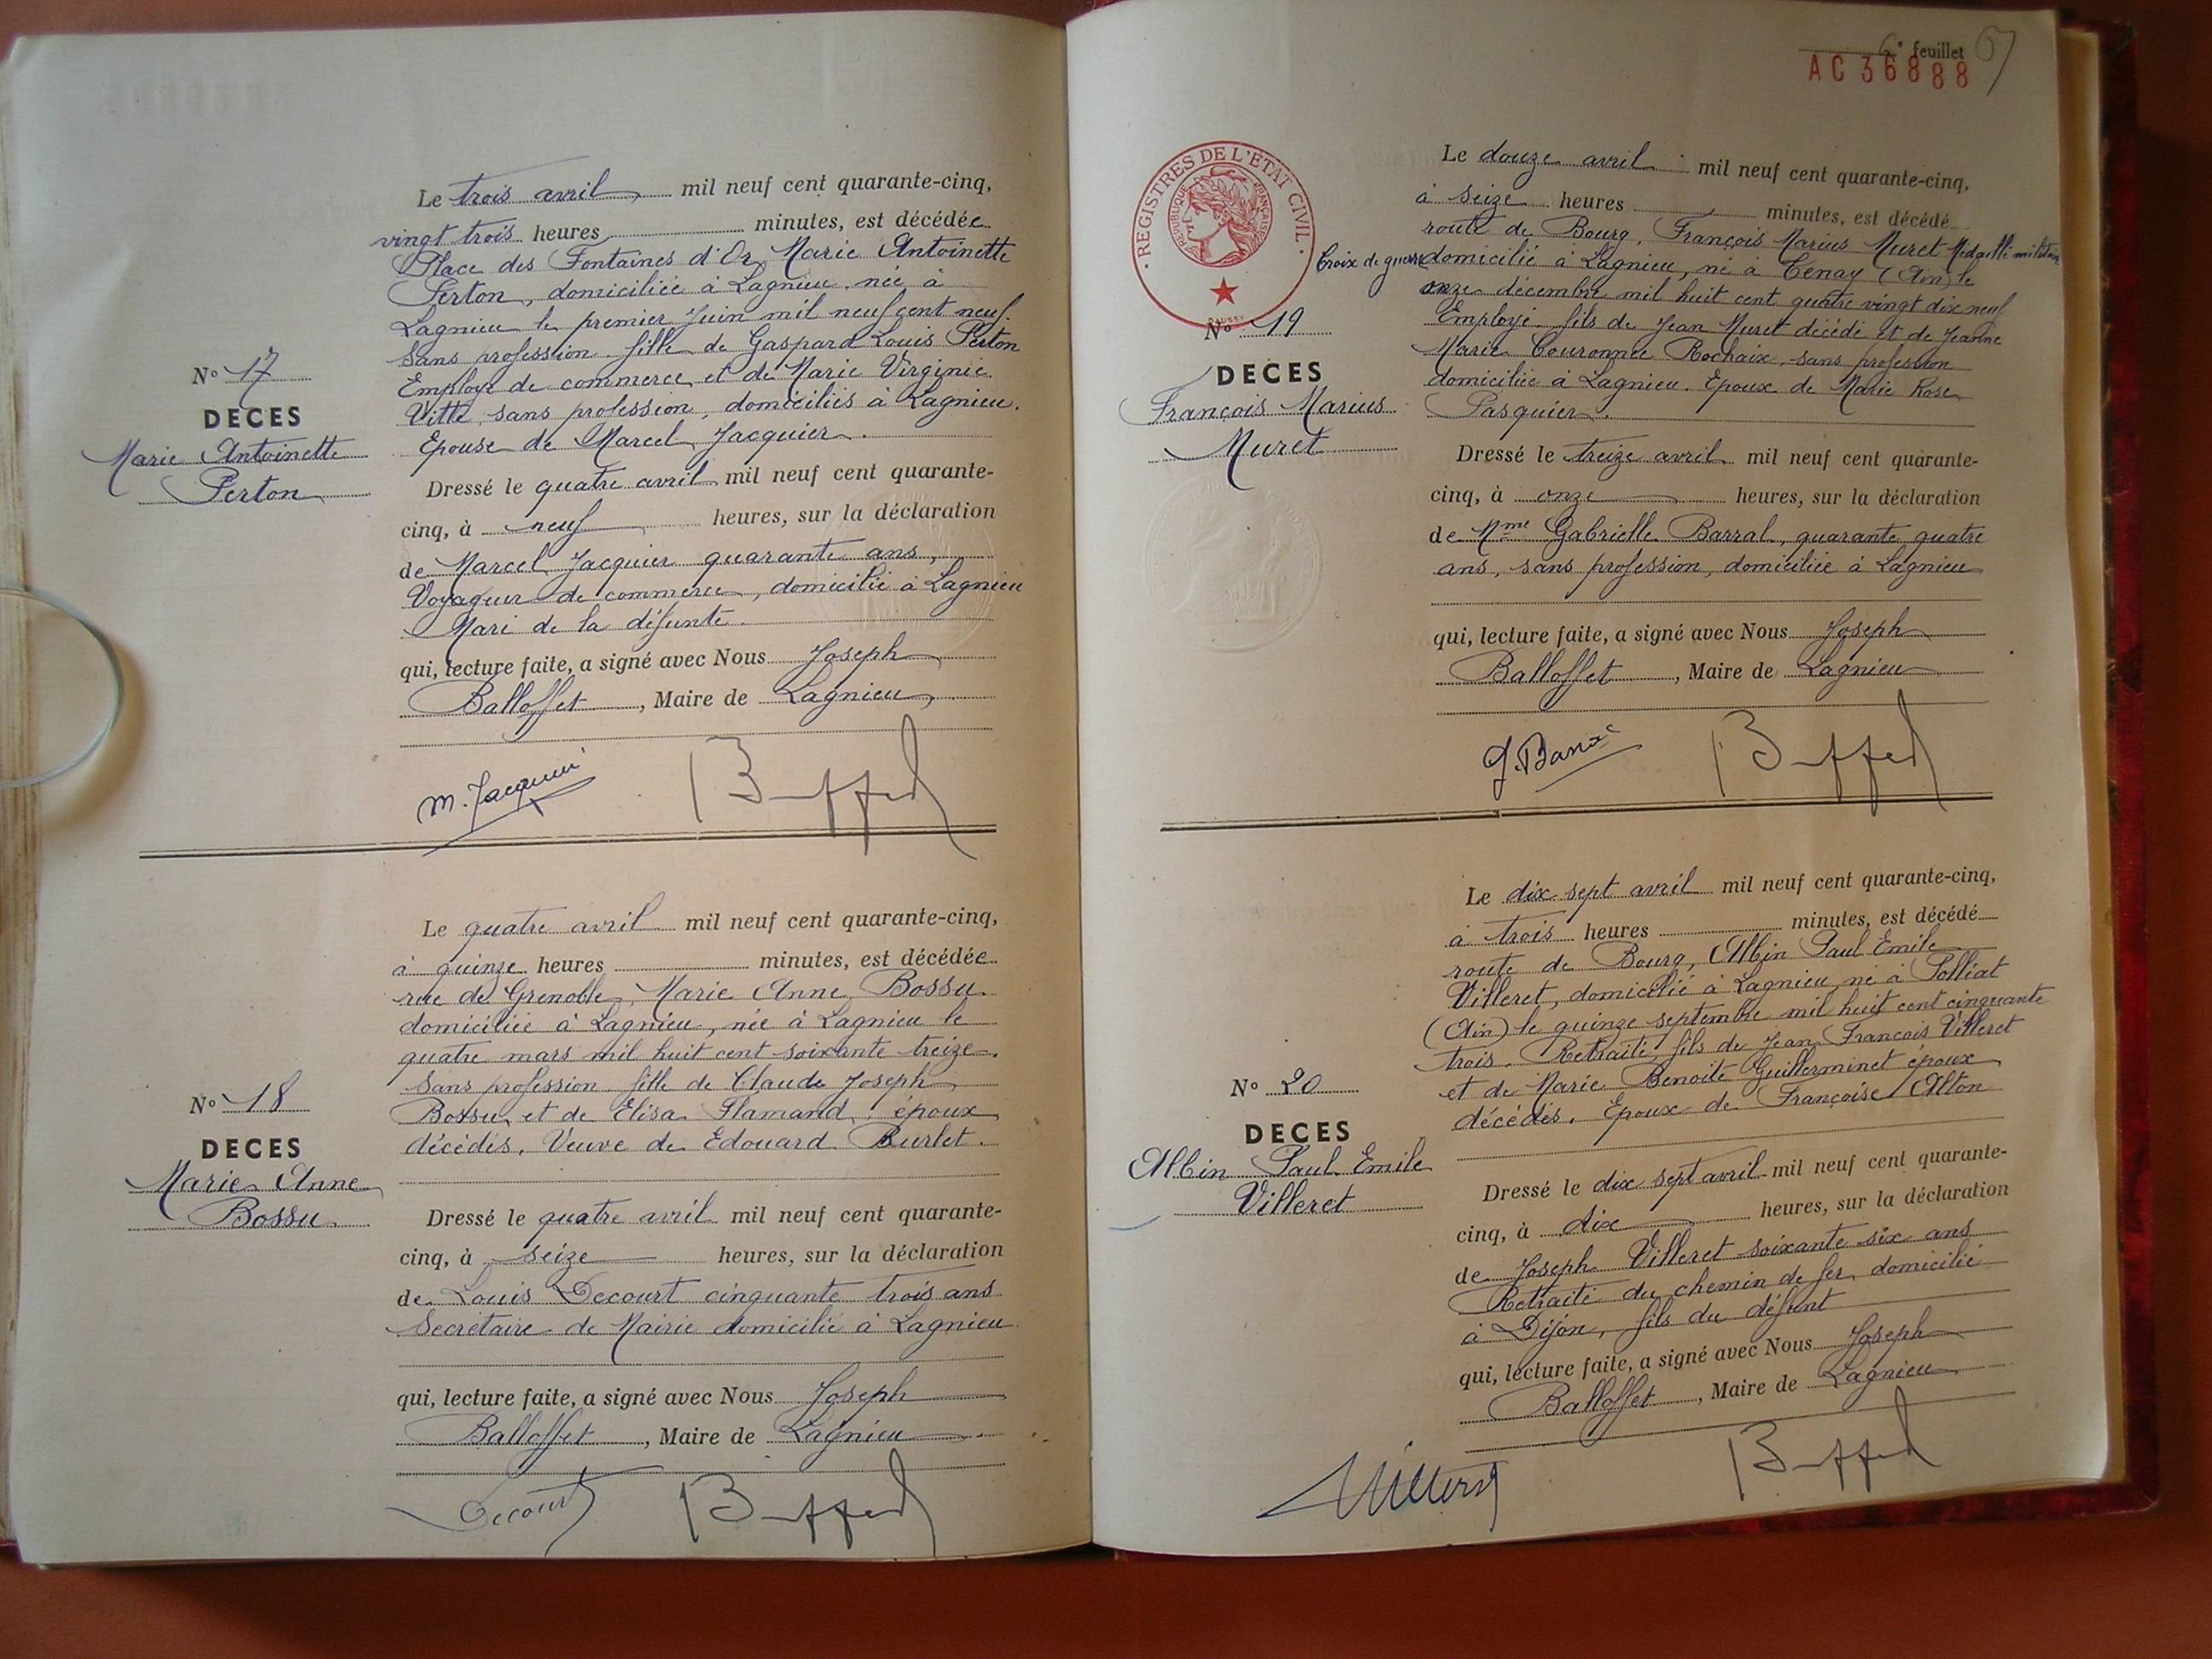 Le trois avril mil neuf cent quarante-cinq,
vingt trois heures minutes, est décédée
Place des Fontaines d'Or, Marie Antoinette
Perton, domiciliée à Lagnieu, née à
Lagnieu le premier Juin mil neuf cent neuf.
Sans profession fille de Gaspard Louis Perton
Employé de commerce et de Marie Virginie
Vitte, sans profession, domiciliés à Lagnieu.
Epouse de Marcel Jacquier.
N° 17
DECES
Marie Antoinette
Perton
Dressé le quatre avril mil neuf cent quarante-
cinq, à neuf heures, sur la déclaration
de Marcel Jacquier quarante ans,
Voyageur de commerce, domicilié à Lagnieu
Mari de la défunte.
qui, lecture faite, a signé avec Nous Joseph
Balloffet, Maire de Lagnieu,
M. Jacquier
Le quatre avril mil neuf cent quarante-cinq,
à quinze heures minutes, est décédée
rue de Grenoble, Marie Anne Bossu
domiciliée à Lagnieu, née à Lagnieu le
quatre mars mil huit cent soixante treize.
Sans profession fille de Claude Joseph
Bossu et de Elisa Flamand, époux
décédés. Veuve de Edouard Burlet.
N° 18
DECES
Marie Anne
Bossu
Dressé le quatre avril mil neuf cent quarante-
cinq, à seize heures, sur la déclaration
de Louis Decourt cinquante trois ans
Secrétaire de Mairie domicilié à Lagnieu
qui, lecture faite, a signé avec Nous Joseph
Balloffet, Maire de Lagnieu
Decourt
6e feuillet 67
AC 36888
REGISTRES DE L'ETAT CIVIL
REPUBLIQUE FRANÇAISE
Le douze avril mil neuf cent quarante-cinq,
à seize heures minutes, est décédé
route de Bourg, François Marius Muret Médaillé militaire
Croix de guerre domicilié à Lagnieu, né à Tenay (Ain) le
onze décembre mil huit cent quatre vingt dix neuf
Employé fils de Jean Muret décédé et de Jeanne
Marie Couronnée Rochaix, sans profession
domiciliée à Lagnieu. Epoux de Marie Rose
Pasquier.
N° 19
DECES
François Marius
Muret
Dressé le treize avril mil neuf cent quarante-
cinq, à onze heures, sur la déclaration
de Mme Gabrielle Barral, quarante quatre
ans, sans profession, domiciliée à Lagnieu
qui, lecture faite, a signé avec Nous Joseph
Balloffet, Maire de Lagnieu
Le dix sept avril mil neuf cent quarante-cinq,
à trois heures minutes, est décédé
route de Bourg, Albin Paul Emile
Villeret, domicilié à Lagnieu, né à Polliat
(Ain) le quinze septembre mil huit cent cinquante
trois. Retraité, fils de Jean François Villeret
et de Marie Benoite Guillerminet époux
décédés. Epoux de Françoise Alton
N° 20
DECES
Albin Paul Emile
Villeret
Dressé le dix sept avril mil neuf cent quarante-
cinq, à dix heures, sur la déclaration
de Joseph Villeret soixante six ans
Retraité du chemin de fer, domicilié
à Dijon, fils du défunt
qui, lecture faite, a signé avec Nous Joseph
Balloffet, Maire de Lagnieu